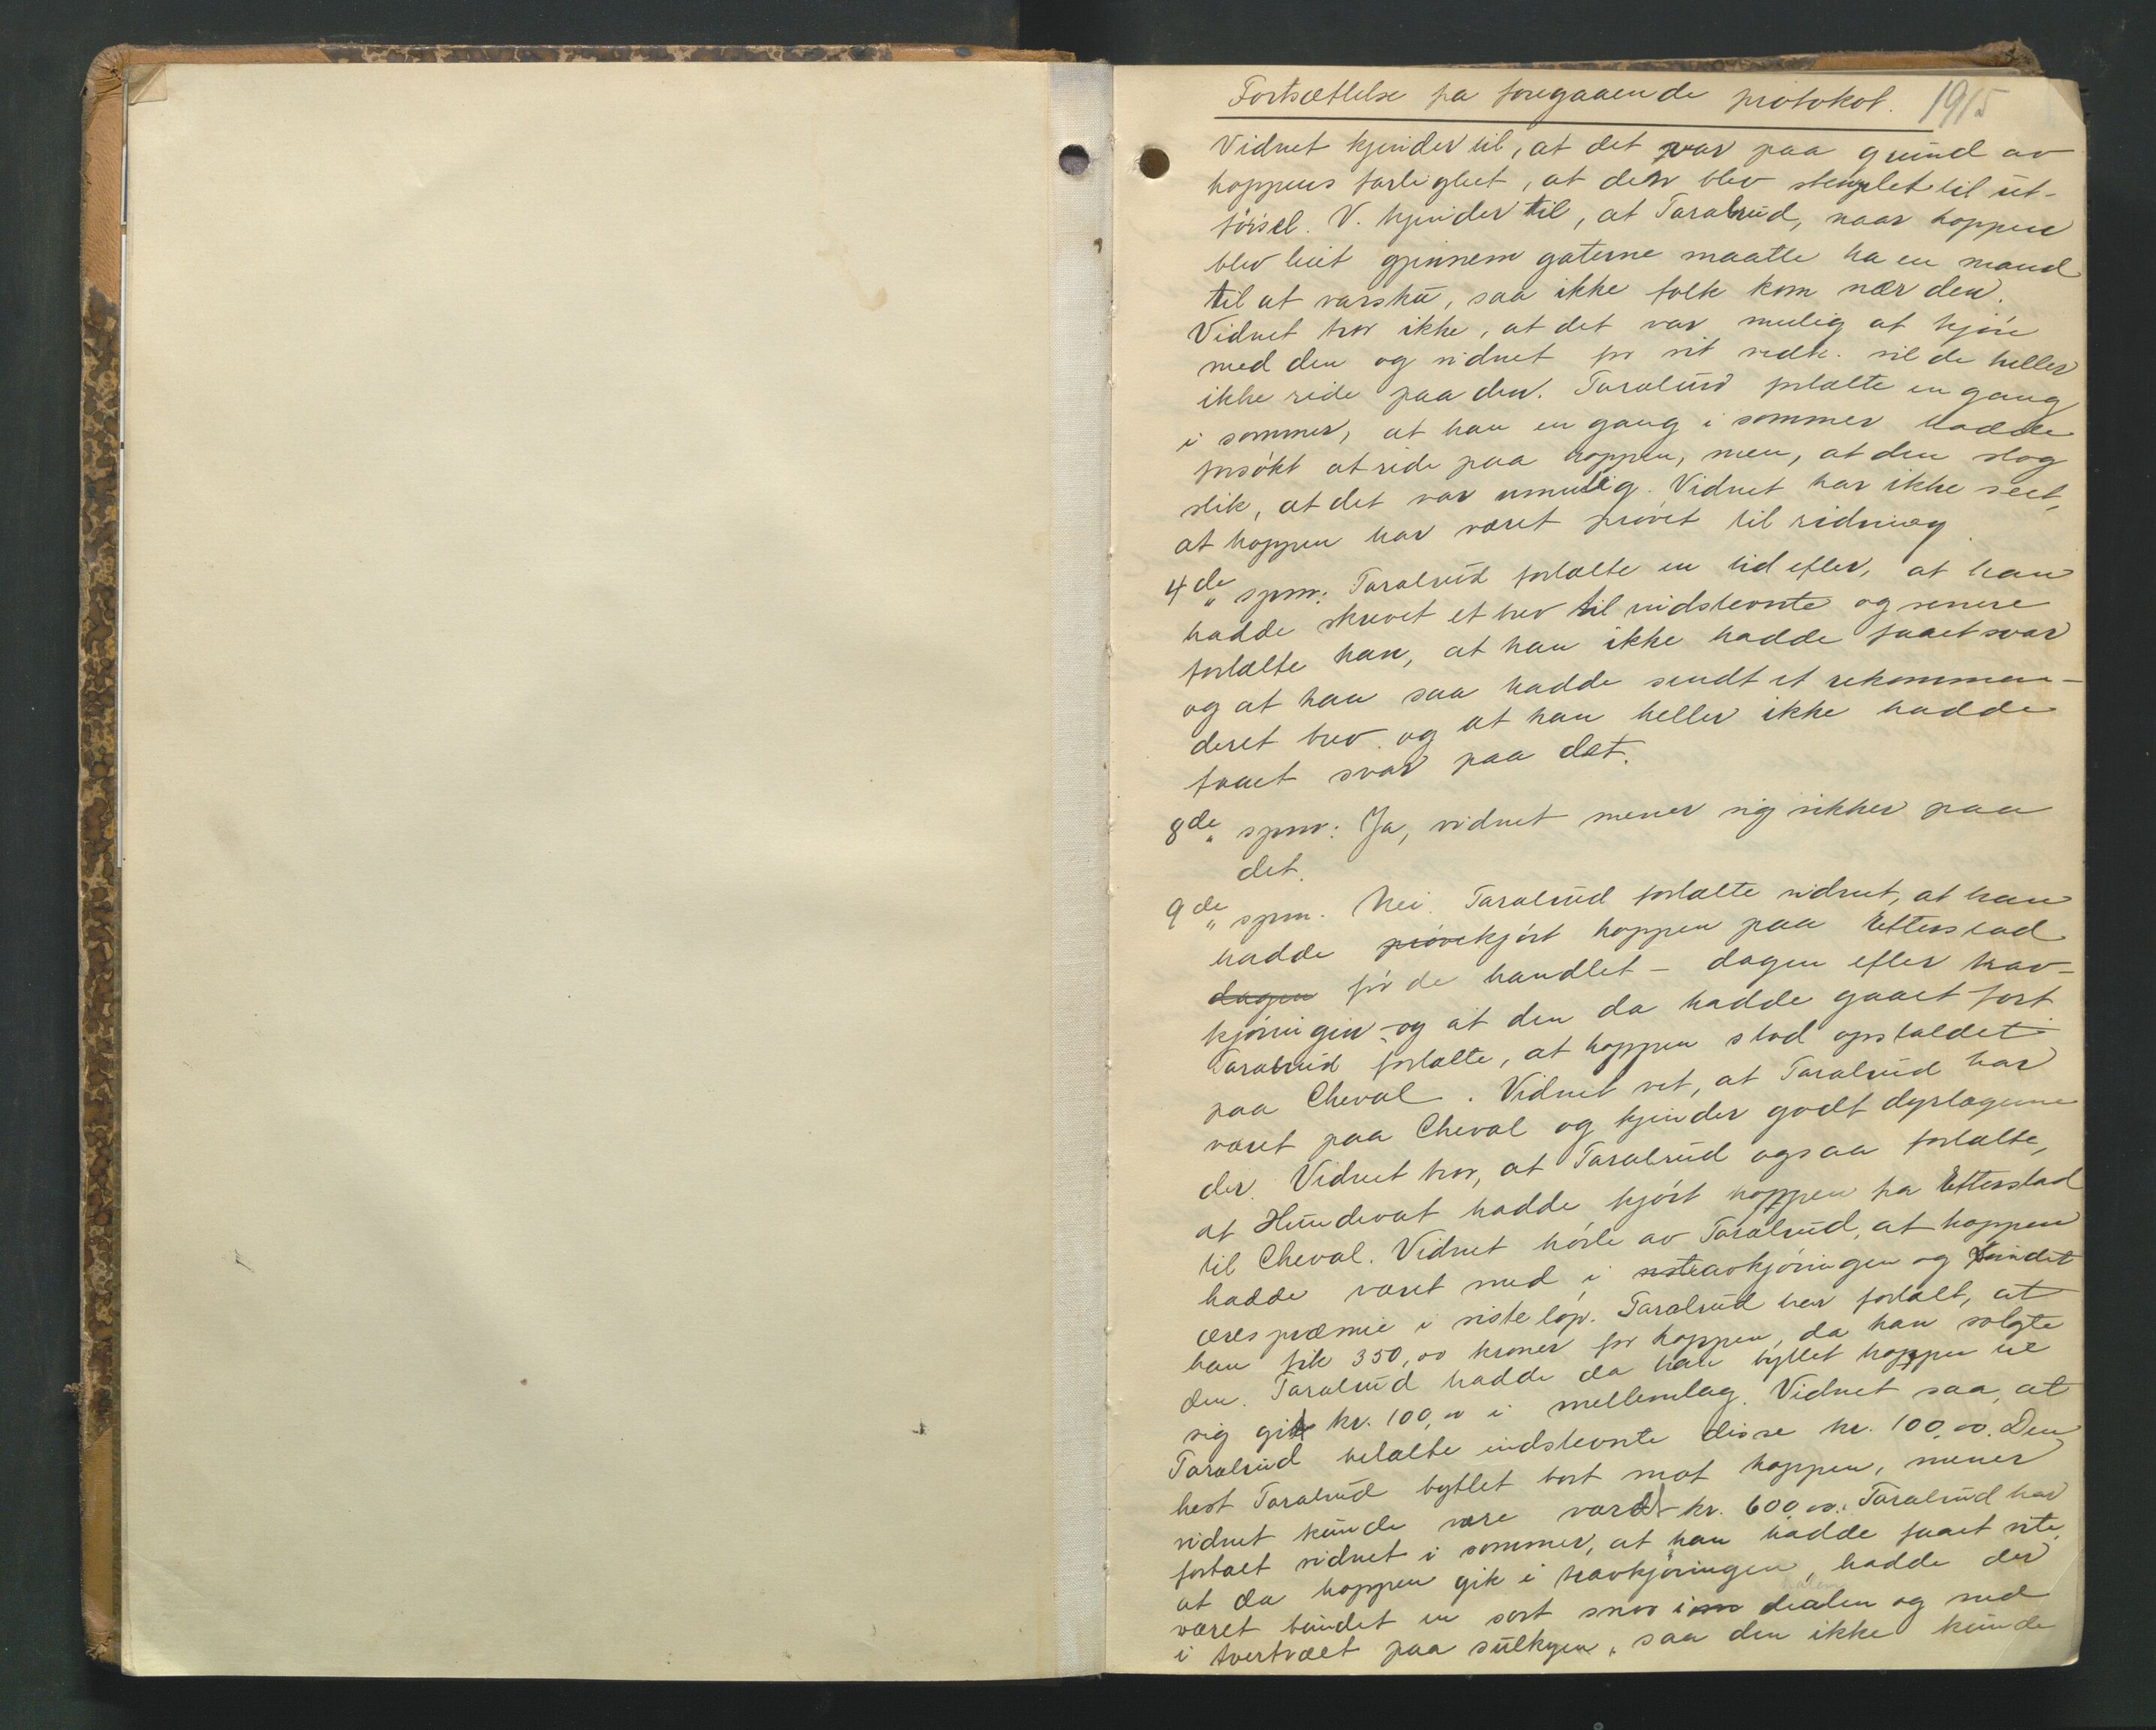 Fortsættelse fra foregaaende protokol. 1915
Vidnet kjender til, at det var paa grund av
hoppens farlighet, at den blev stemplet til ut-
førsel. V. kjender til, at Taralrud, naar hoppen
blev leiet gjennem gaterne maatte ha en mand
til at varsku, saa ikke folk kom nær den.
Vidnet tror ikke, at det var mulig at kjøre
med den og vidnet for sit vedk. vilde heller
ikke ride paa den. Taralrud fortalte en gang
i sommer, at han en gang i sommer hadde
forsøkt at ride paa hoppen, men, at den slog
slik, at det var umulig. Vidnet har ikke seet,
at hoppen har været prøvet til ridning
4de spm: Taralrud fortalte en tid efter, at han
hadde skrevet et brev til indstevnte og senere
fortalte han, at han ikke hadde faaet svar
og at han saa hadde sendt et rekomman-
deret brev og at han heller ikke hadde
faaet svar paa det.
8de spm: Ja, vidnet mener sig sikker paa
det.
9de spm. Nei. Taralrud fortalte vidnet, at han
hadde prøvekjørt hoppen paa Etterstad
dagen før de handlet - dagen efter trav-
kjøringen - og at den da hadde gaaet fort
Taralrud fortalte, at hoppen stod opstaldet
paa Cheval. Vidnet vet, at Taralrud har
været paa Cheval og kjender godt dyrlægerne
der. Vidnet tror, at Taralrud ogsaa fortalte,
at Hundevat hadde kjørt hoppen fra Etterstad
til Cheval. Vidnet hørte av Taralrud, at hoppen
hadde været med i travkjøringen og vundet
ærespræmie i siste løp. Taralrud har fortalt, at
han fik 350,00 kroner for hoppen, da han solgte
den. Taralrud hadde da han byttet hoppen til
sig git kr. 100,00 i mellemlag. Vidnet saa, at
Taralrud betalte indstevnte disse kr. 100,00. Den
hest Taralrud byttet bort mot hoppen, mener
vidnet kunde være værdt kr. 600,00. Taralrud har
fortalt vidnet i sommer, at han hadde faaet vite,
at da hoppen gik i travkjøringen, hadde der
været bundet en sort snor i halen og ned
i tvertræet paa sulkyen, saa den ikke kunde